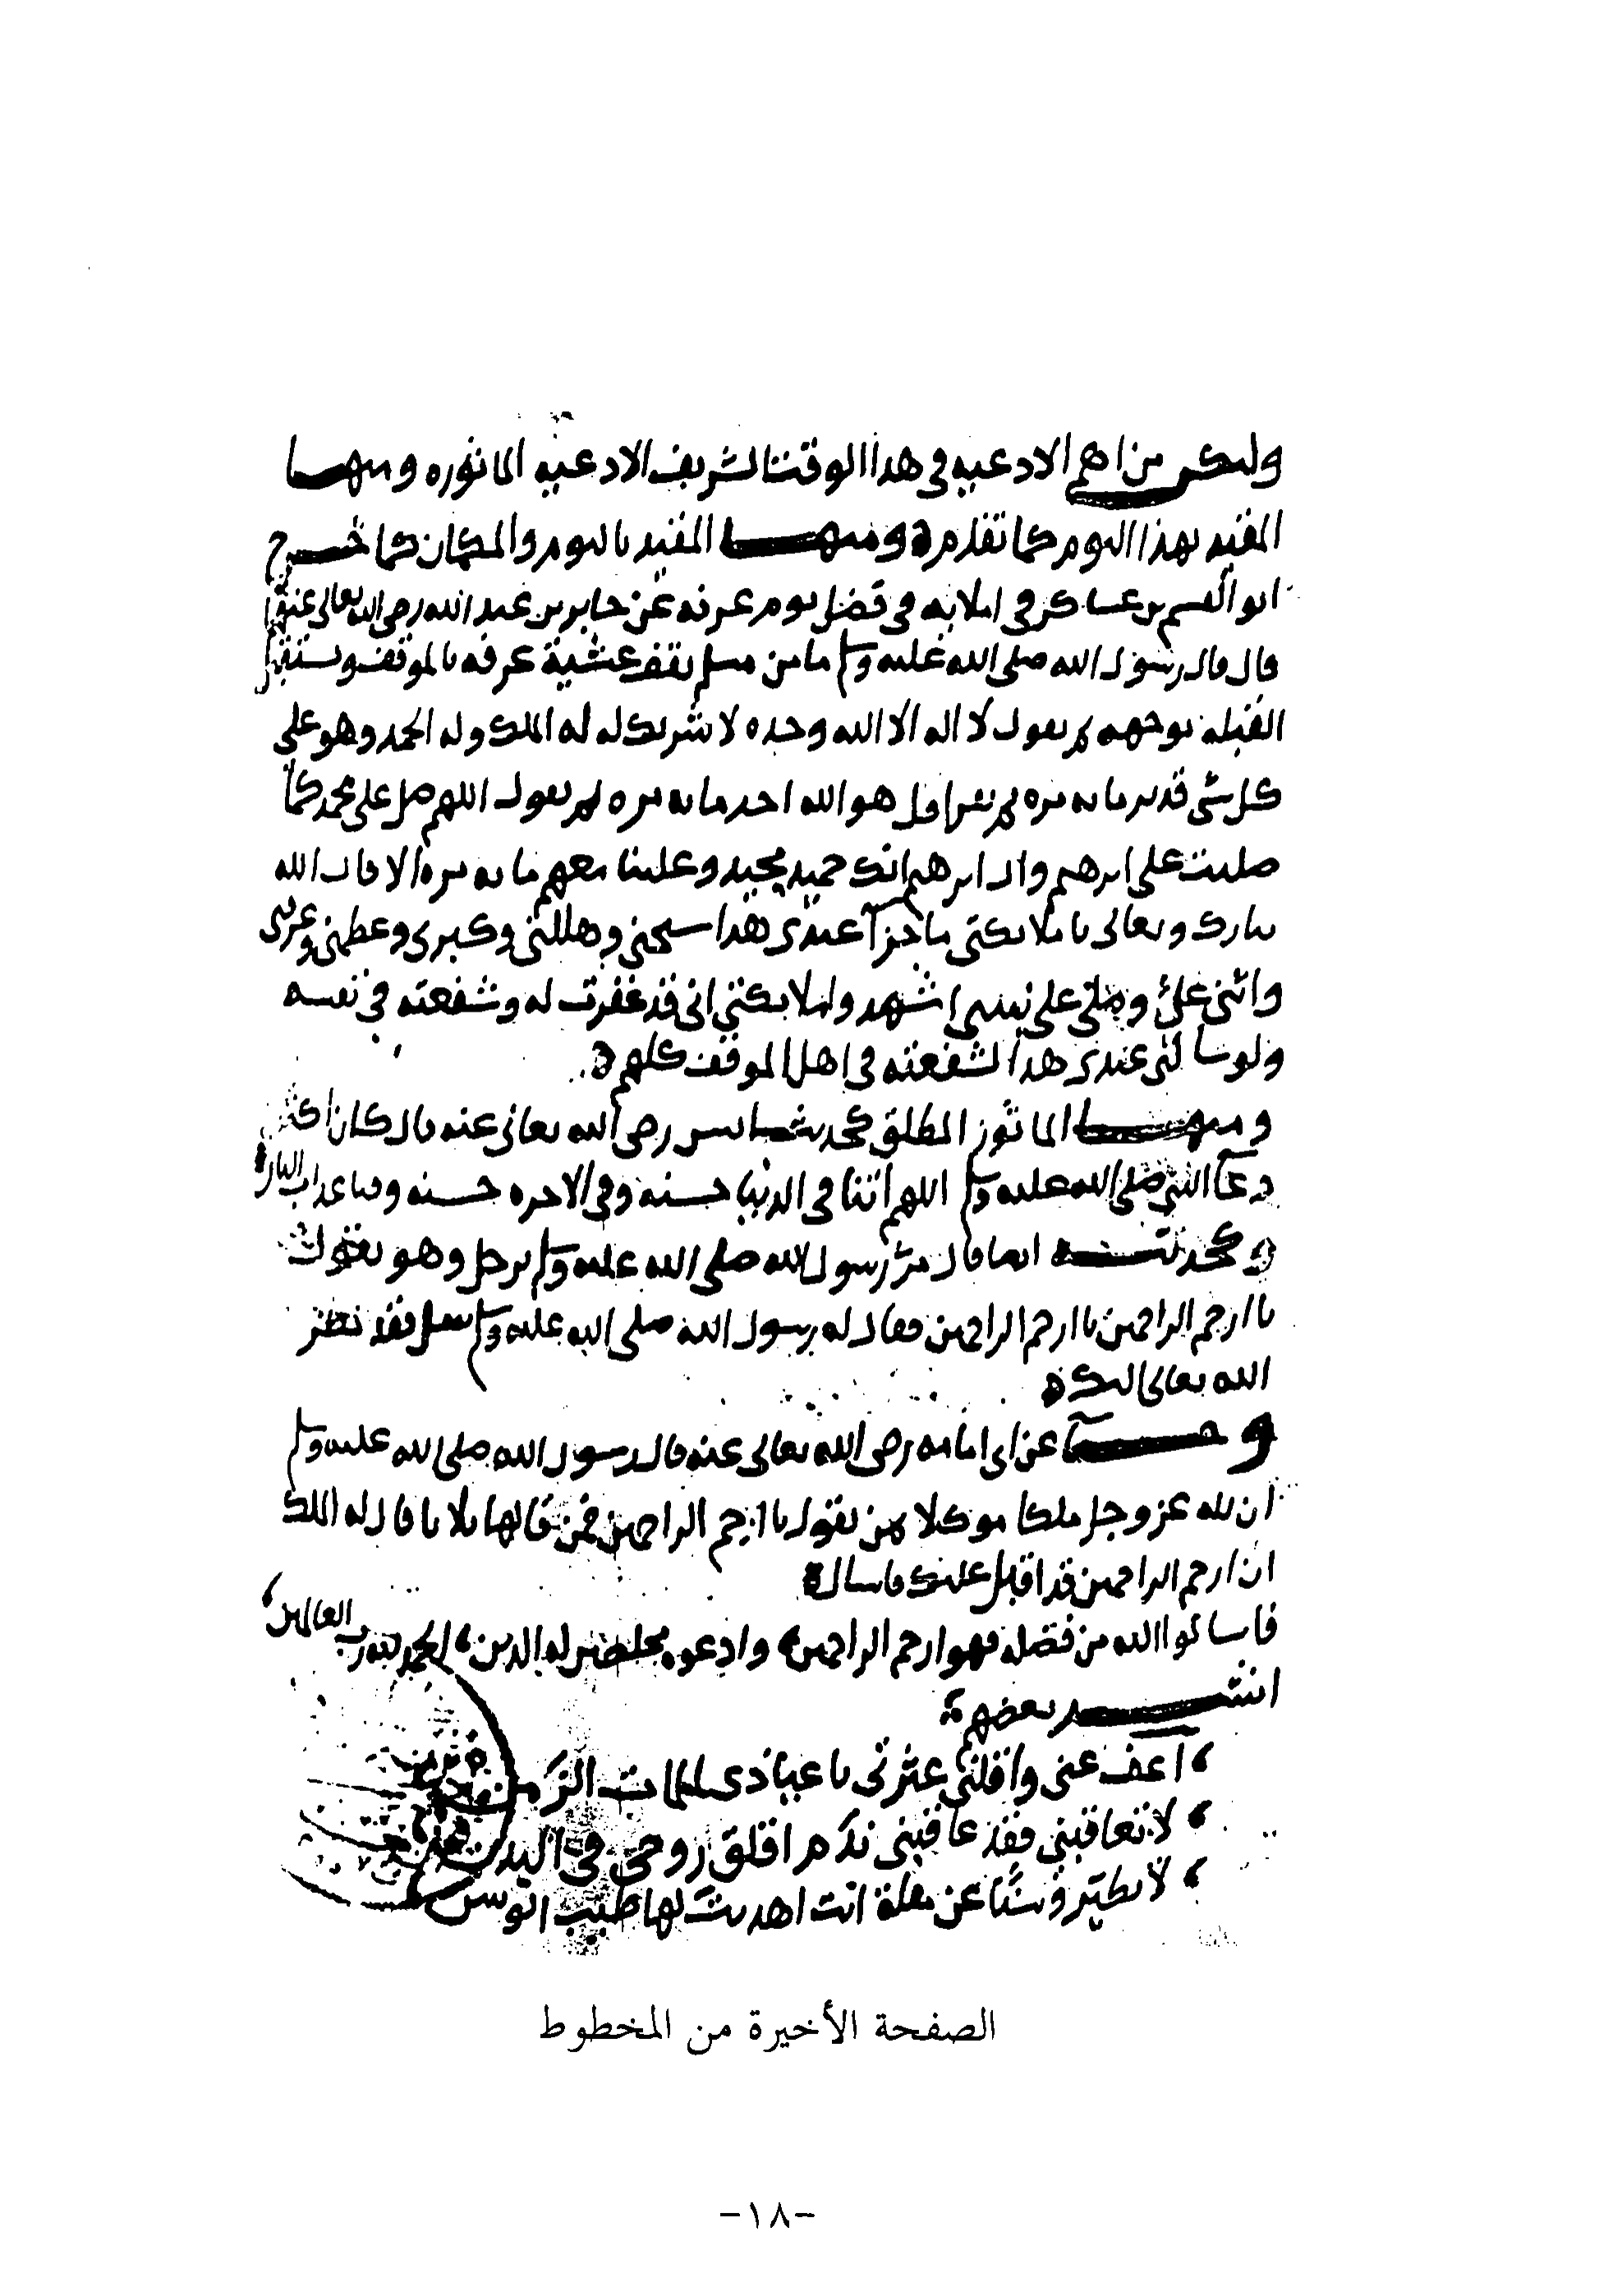 وليكن من اهم الادعيه في هذا الوقت الشريف الادعيه الماثوره ومنها
المقيد بهذا اليوم كما تقدم ومنها المقيد باليوم والمكان كما خرج
ابو القسم بن عساكر في املايه في فضل يوم عرفه عن جابر بن عبد الله رضى الله تعالى عنهما
قال قال رسول الله صلى الله عليه وسلم ما من مسلم يقف عشية عرفه بالموقف ويستقبل
القبله بوجهه ثم يقول لا اله الا الله وحده لا شريك له له الملك وله الحمد وهو على
كل شى قدير مايه مره ثم يقرا قل هو الله احد مايه مره ثم يقول اللهم صل على محمد كما
صليت على ابرهيم وال ابرهيم انك حميد مجيد وعلينا معهم مايه مره الا قال الله
تبارك وتعالى يا ملايكتى ما جزآ عبدى هذا سبحنى وهللنى وكبرنى وعظمنى وعرفنى
واثنى علىّ وصلى على نبيى اشهدوا ملايكتى انى قد غفرت له وشفعته في نفسه
ولو سالنى عبدى هذا لشفعته في اهل الموقف كلهم
ومنها الماثور المطلق كحديث انس رضى الله تعالى عنه قال كان اكثر
دعآ النبى صلى الله عليه وسلم اللهم آتنا فى الدنيا حسنه وفى الاخره حسنه وقنا عذاب النار
وكحديثه ايضا قال مرّ رسول الله صلى الله عليه وسلم برجل وهو يقول
يا ارحم الراحمين يا ارحم الراحمين فقال له رسول الله صلى الله عليه وسلم سل فقد نظر
الله تعالى اليك
وجآ عن ابى امامه رضى الله تعالى عنه قال رسول الله صلى الله عليه وسلم
ان لله عز وجل ملكا موكلا بمن يقول يا ارحم الراحمين فمن قالها ثلاثا قال له الملك
ان ارحم الراحمين قد اقبل عليك فاسال
فاسالوا الله من فضله فهو ارحم الراحمين وادعوه مخلصين له الدين الحمد لله رب العالمين
انشد بعضهم
اعف عنى واقلنى عثرتى يا عياذى لملمات الزمن
لا تعاقبنى فقد عاقبنى ندم اقلق روحى فى البدن
لا تطيّر وسنًا عن مقلة انت اهديت لها طيب الوسن
الصفحة الأخيرة من المخطوط
-١٨-